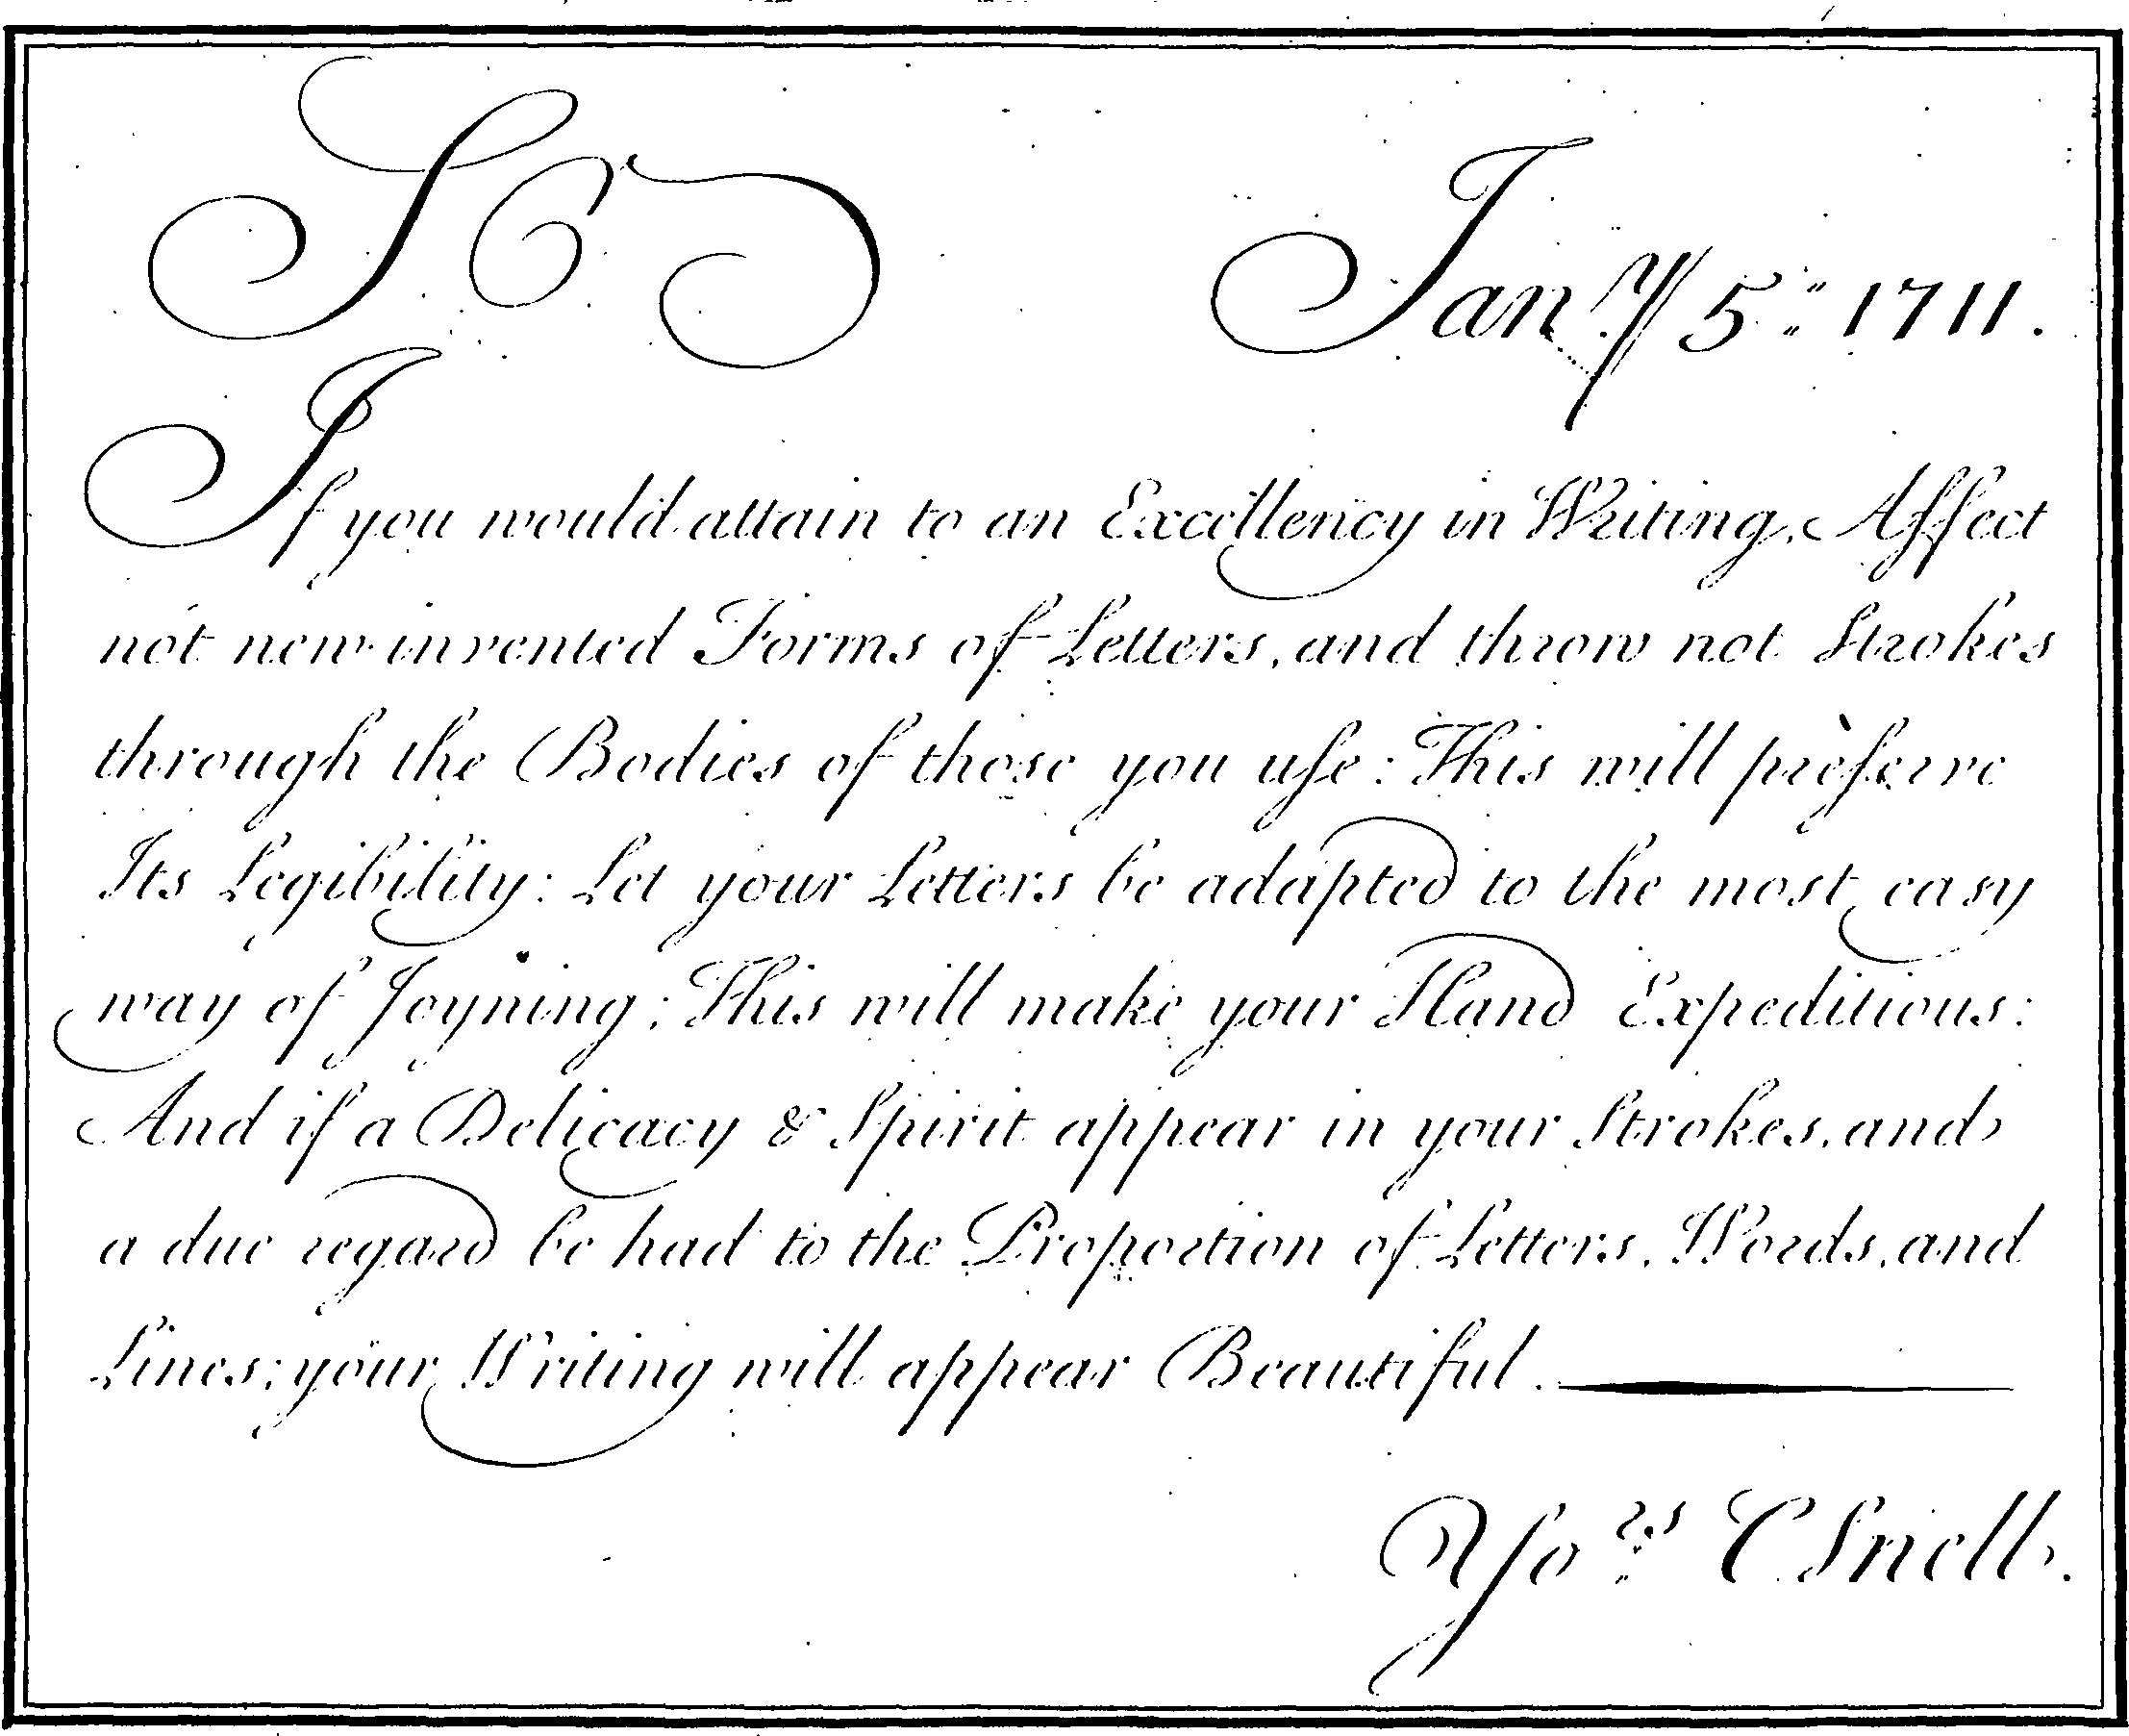 Jan.ry 5.th 1711.
If you would attain to an Excellency in Writing, Affect
not new invented Forms of Letters, and throw not Strokes
through the Bodies of those you uſe: This will preſerve
Its Legibility: Let your Letters be adapted to the most easy
way of Joyning; This will make your Hand Expeditious:
And if a Delicacy & Spirit appear in your Strokes, and
a due regard be had to the Proportion of Letters, Words, and
Lines; your Writing will appear Beautiful.
Yo.rs C Snell.